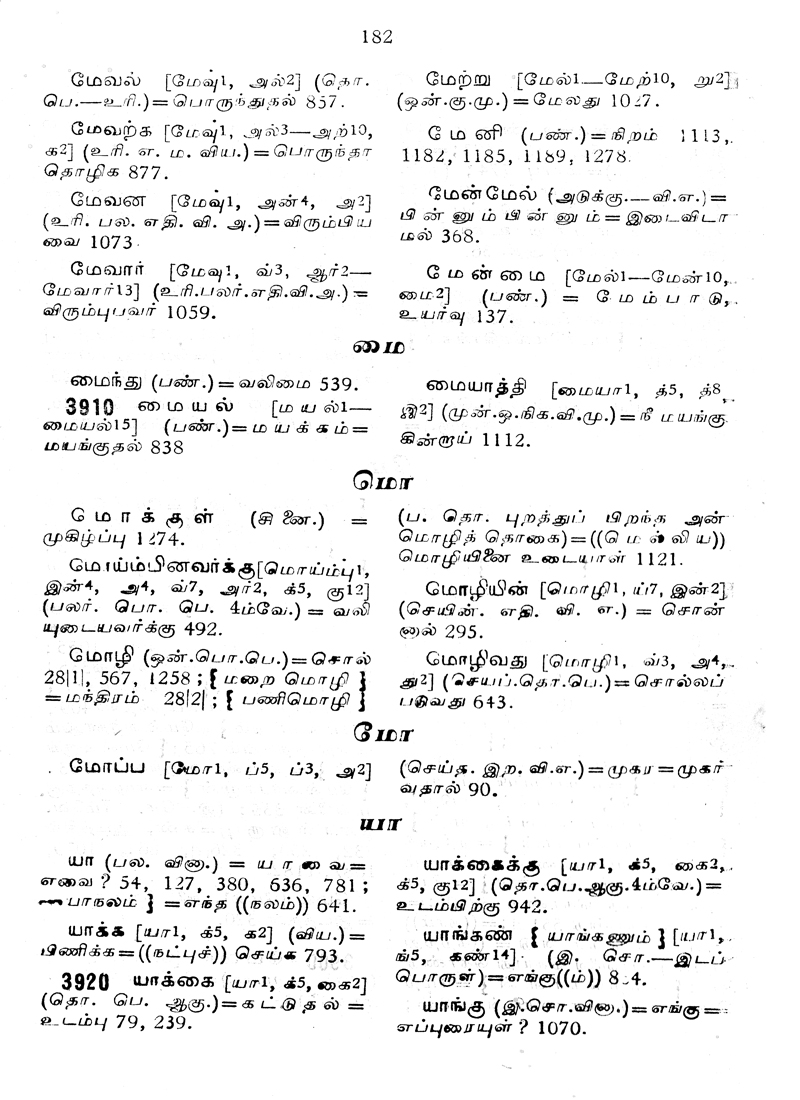 182
மேவல் [மேவு1, அல்2] (தொ.
பெ.—உரி.)=பொருந்துதல் 857.
மேவற்க [மேவு1, அல்3—அற்10,
க2] (உரி. எ. ம. விய.)=பொருந்தா
தொழிக 877.
மேவன [மேவு1, அன்4, அ2]
(உரி. பல. எதி. வி. அ.)=விரும்பிய
வை 1073
மேவார் [மேவு1, வ்3, ஆர்2—
மேவார்13] (உரி.பலர்.எதி.வி.அ.)=
விரும்புபவர் 1059.
மேற்று [மேல்1—மேற்10, று2]
(ஒன்.கு.மு.)=மேலது 1027.
மேனி (பண்.)=நிறம் 1113,
1182, 1185, 1189, 1278.
மேன்மேல் (அடுக்கு.—வி.எ.)=
பின்னும்பின்னும்=இடைவிடா
மல் 368.
மேன்மை [மேல்1—மேன்10,
மை2] (பண்.) = மேம்பாடு,
உயர்வு 137.
மை
மைந்து (பண்.)=வலிமை 539.
3910 மையல் [மயல்1—
மையல்15] (பண்.)=மயக்கம்=
மயங்குதல் 838
மையாத்தி [மையா1, த்5, த்8,
இ2] (முன்.ஒ.நிக.வி.மு.)=நீ மயங்கு
கின்றாய் 1112.
மொ
மொக்குள் (சினை.) =
முகிழ்ப்பு 1274.
மொய்ம்பினவர்க்கு[மொய்ம்பு1,
இன்4, அ4, வ்7, அர்2, க்5, கு12]
(பலர். பொ. பெ. 4ம்வே.)=வலி
யுடையவர்க்கு 492.
மொழி (ஒன்.பொ.பெ.)=சொல்
28|1|, 567, 1258; { மறை மொழி }
=மந்திரம் 28|2|; { பணிமொழி }
(ப. தொ. புறத்துப் பிறந்த அன்
மொழித் தொகை)=((மெல்லிய))
மொழியினை உடையாள் 1121.
மொழியின் [மொழி1, ய்7, இன்2]
(செயின். எதி. வி. எ.) = சொன்
னால் 295.
மொழிவது [மொழி1, வ்3, அ4,
து2] (செயப்.தொ.பெ.)=சொல்லப்
படுவது 643.
மோ
மோப்ப [மோ1, ப்5, ப்3, அ2]
(செய்த. இற. வி.எ.)=முகர=முகர்
வதால் 90.
யா
யா (பல. வினா.) = யாவை=
எவை? 54, 127, 380, 636, 781;
~~பாநலம் } =எந்த ((நலம்)) 641.
யாக்க [யா1, க்5, க2] (விய.)=
பிணிக்க=((நட்புச்)) செய்க 793.
3920 யாக்கை [யா1, க்5, கை2]
(தொ. பெ. ஆகு.)=கட்டுதல்=
உடம்பு 79, 239.
யாக்கைக்கு [யா1, க்5, கை2,
க்5, கு12] (தொ.பெ.ஆகு.4ம்வே.)=
உடம்பிற்கு 942.
யாங்கண் { யாங்கணும் } [யா1,
ங்5, கண்14] (இ. சொ.—இடப்
பொருள்)=எங்கு((ம்))
யாங்கு (இ.சொ.வினா.)=எங்கு=
எப்புரையுள்? 1070.